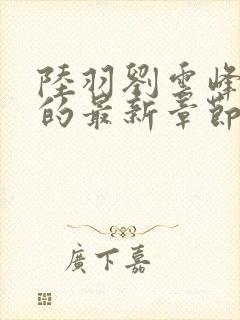 陸羽劉雲峰
的最新章節
廣下嘉